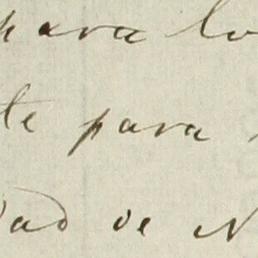 para lo
te para
dad de N